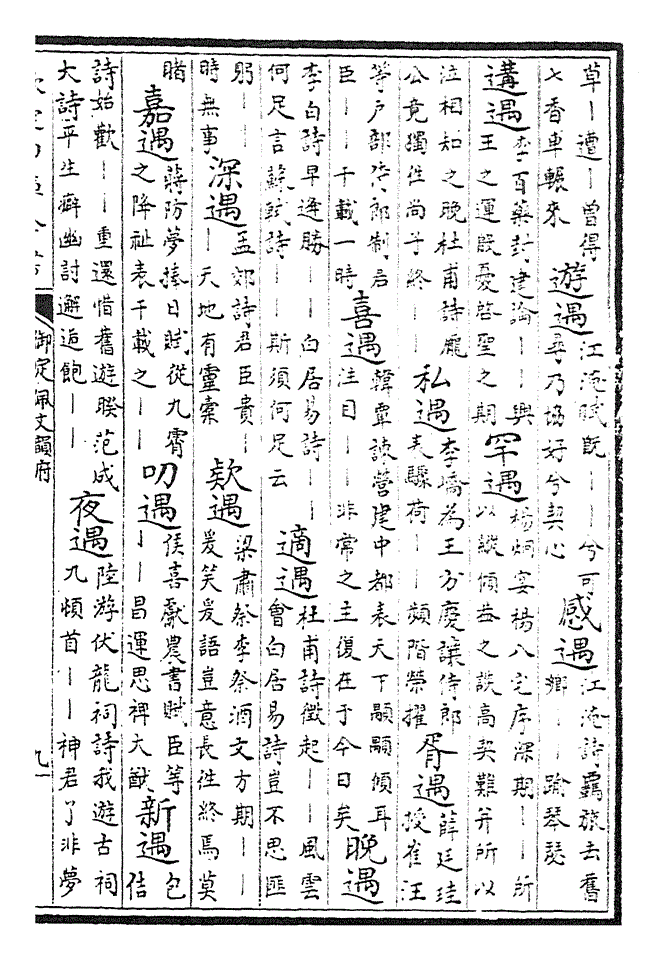 草丨遭丨曾得七香車輾來 遊遇江淹賦既丨丨兮可尋乃協好兮契心 感遇江淹詩羈旅去舊鄉丨丨踰琴瑟
遘遇李百藥封建論丨丨興王之運殷憂啓聖之期 罕遇楊炯宴楊八宅序深期丨丨所以縱傾葢之談高契難并所以
泣相知之晚杜甫詩龎公竟獨往尚子終丨丨 私遇李嶠為王方慶讓侍郎表驟荷丨丨頻階榮擢 胥遇薛廷珪授崔汪
等户部侍郎制君臣丨丨千載一時 喜遇韓覃諫營建中都表天下顒顒傾耳注目丨丨非常之主復在于今日矣 晚遇
李白詩早逢勝丨丨白居易詩丨丨何足言蘇軾詩丨丨斯須何足云 適遇杜甫詩徵起丨丨風雲會白居易詩豈不思匪
躬丨丨丨時無事 深遇孟郊詩君臣貴丨丨天地有靈槖 欵遇梁肅祭李祭酒文方期丨丨爰笑爰語豈意長往終焉莫
睹 嘉遇蔣防夢捧日賦從九霄之降祉表千載之丨丨 叨遇侯喜獻農書賦臣等丨丨昌運思裨大猷 新遇包佶
詩始歡丨丨重還惜舊遊暌范成大詩平生癖幽討邂逅飽丨丨 夜遇陸游伏龍祠詩我遊古祠九頓首丨丨神君了非夢
御定佩文韻府